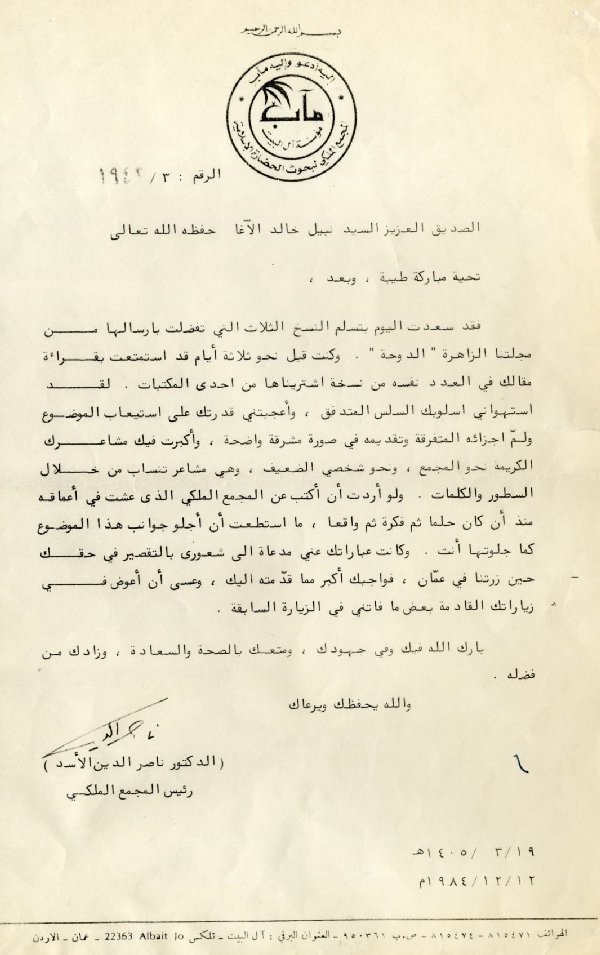 بسم الله الرحمن الرحيم
إليه أدعو وإليه مآب
مآب
مؤسسة آل البيت
المجمع الملكي لبحوث الحضارة الإسلامية
الرقم : ٣/ ١٩٤٢
الصديق العزيز السيد نبيل خالد الآغا حفظه الله تعالى
تحية مباركة طيبة ، وبعد ،
فقد سعدت اليوم بتسلم النسخ الثلاث التي تفضلت بارسالها مـــن
مجلتنا الزاهرة " الدوحة " . وكنت قبل نحو ثلاثة أيام قد استمتعت بقـــراءة
مقالك في العدد نفسه من نسخة اشتريناها من احدى المكتبات . لقــــد
استهواني اسلوبك السلس المتدفق ، وأعجبتني قدرتك على استيعاب الموضوع
ولمّ اجزائه المتفرقة وتقديمه في صورة مشرقة واضحة ، وأكبرت فيك مشاعـــرك
الكريمة نحو المجمع ، ونحو شخصي الضعيف ، وهي مشاعر تنساب من خـــلال
السطور والكلمات . ولو أردت أن أكتب عن المجمع الملكي الذى عشت في أعماقه
منذ أن كان حلما ثم فكرة ثم واقعا ، ما استطعت أن أجلو جوانب هذا الموضوع
كما جلوتها أنت . وكانت عباراتك عني مدعاة الى شعورى بالتقصير في حقـــك
حين زرتنا في عمّان ، فواجبك أكبر مما قدّمته اليك ، وعسى أن أعوض فـــي
زياراتك القادمة بعض ما فاتني في الزيارة السابقة .
بارك الله فيك وفي جهودك ، ومتعك بالصحة والسعادة ، وزادك من
فضله .
والله يحفظك ويرعاك
ناصر الدين
( الدكتور ناصر الدين الأسد )
رئيس المجمع الملكـــي
١٩ /٣ /١٤٠٥هـ
١٢/١٢/١٩٨٤م
الهواتف ٨١٥٤٧١ - ٨١٥٤٧٤ - ص.ب ٩٥٠٣٦١ - العنوان البرقي : آل البيت - تلكس 22363 Albait Jo - عمان - الاردن